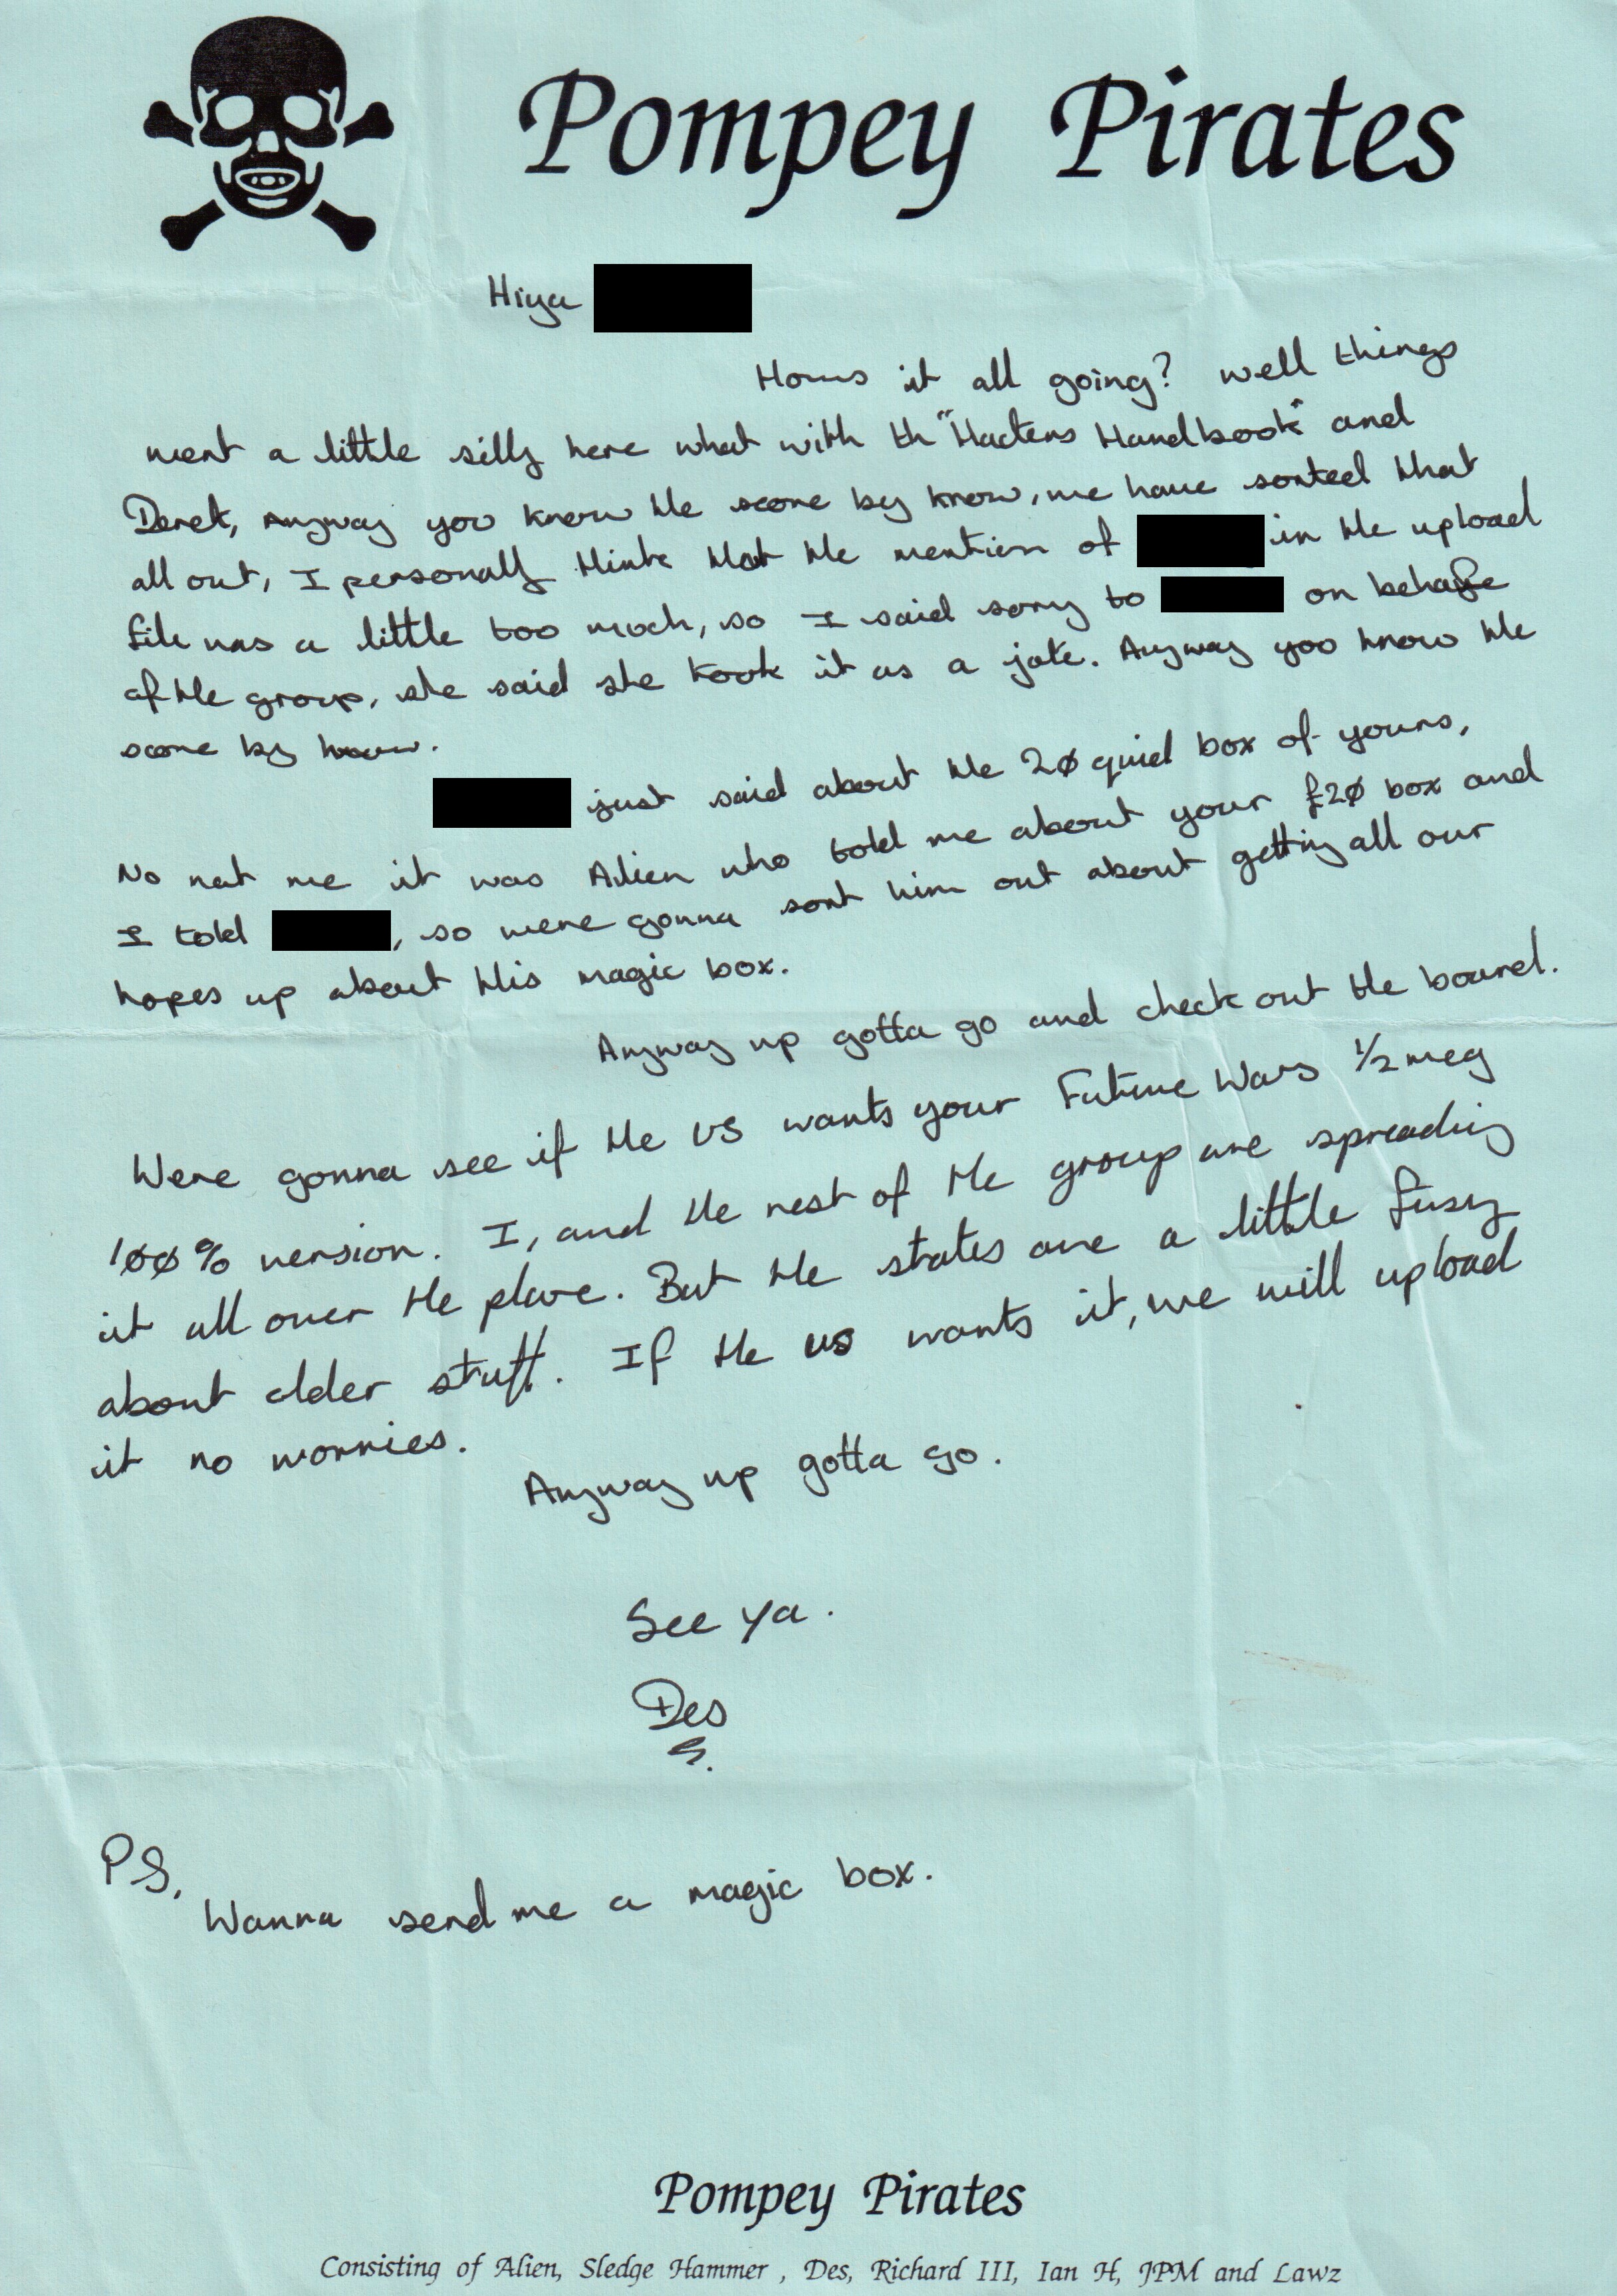 Pompey Pirates
Hiya
Hows it all going? well things
went a little silly here what with th "Hackers Handbook" and
Derek, Anyway you know the score by know, we have sorted that
all out, I personally think that the mention of in the upload
file was a little too much, so I said sorry to on behalfe
of the group, she said she took it as a joke. Anyway you know the
score by
just said about the 20 quid box of yours,
No not me it was Alien who told me about your £20 box and
I told , so were gonna sort him out about getting all our
hopes up about this magic box.
Anyway up gotta go and check out the board.
Were gonna see if the US wants your Future Wars 1/2 meg
100% version. I, and the rest of the group are spreading
it all over the place. But the states are a little fusy
about older stuff. If the US wants it, we will upload
it no worries.
Anyway up gotta go.
See ya.
Des
PS,
Wanna send me a magic box.
Pompey Pirates
Consisting of Alien, Sledge Hammer , Des, Richard III, Ian H, JPM and Lawz